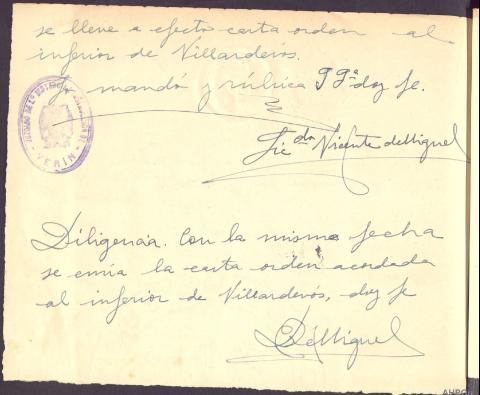 se lleve a efecto carta orden al
inferior de Villarderós.
Y mandó y rúbrica SSª doy fe.
VERIN
Licdo Vicente deMiguel
Diligencia. Con la misma fecha
se envia la carta orden acordada
al inferior de Villarderós, doy fe
DeMiguel